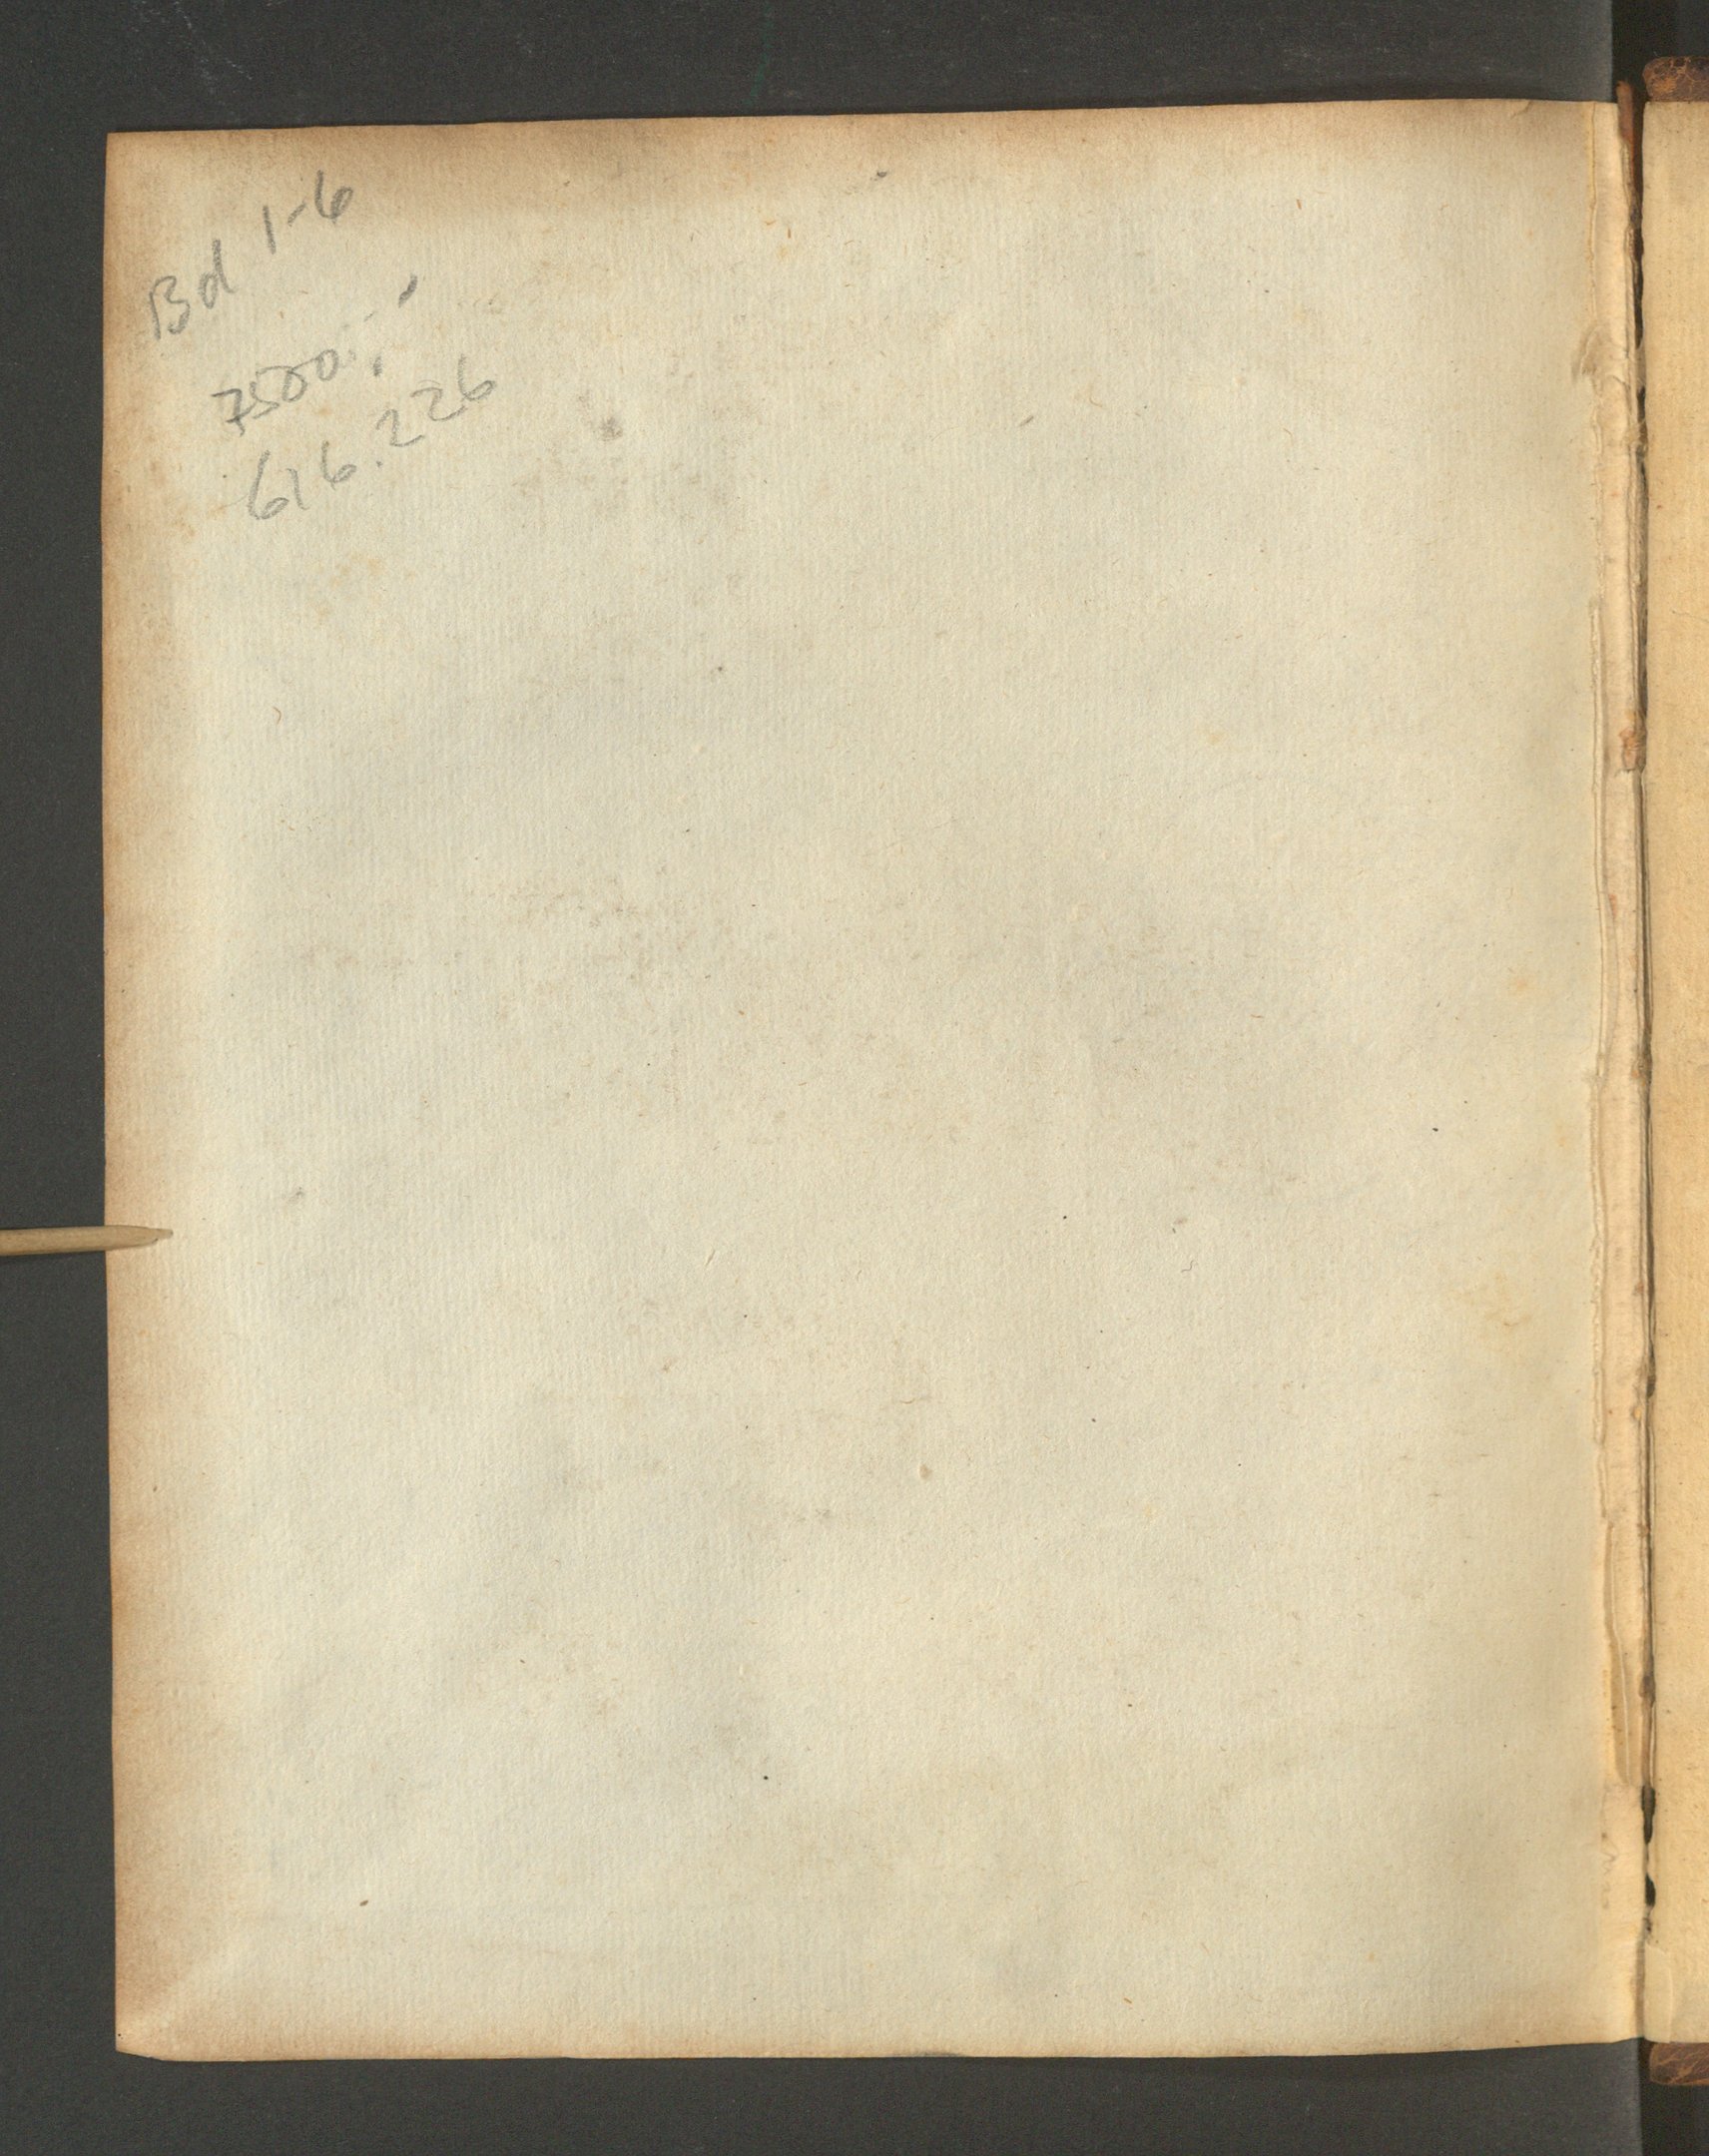 Bd 1-6
7500.-
616.226